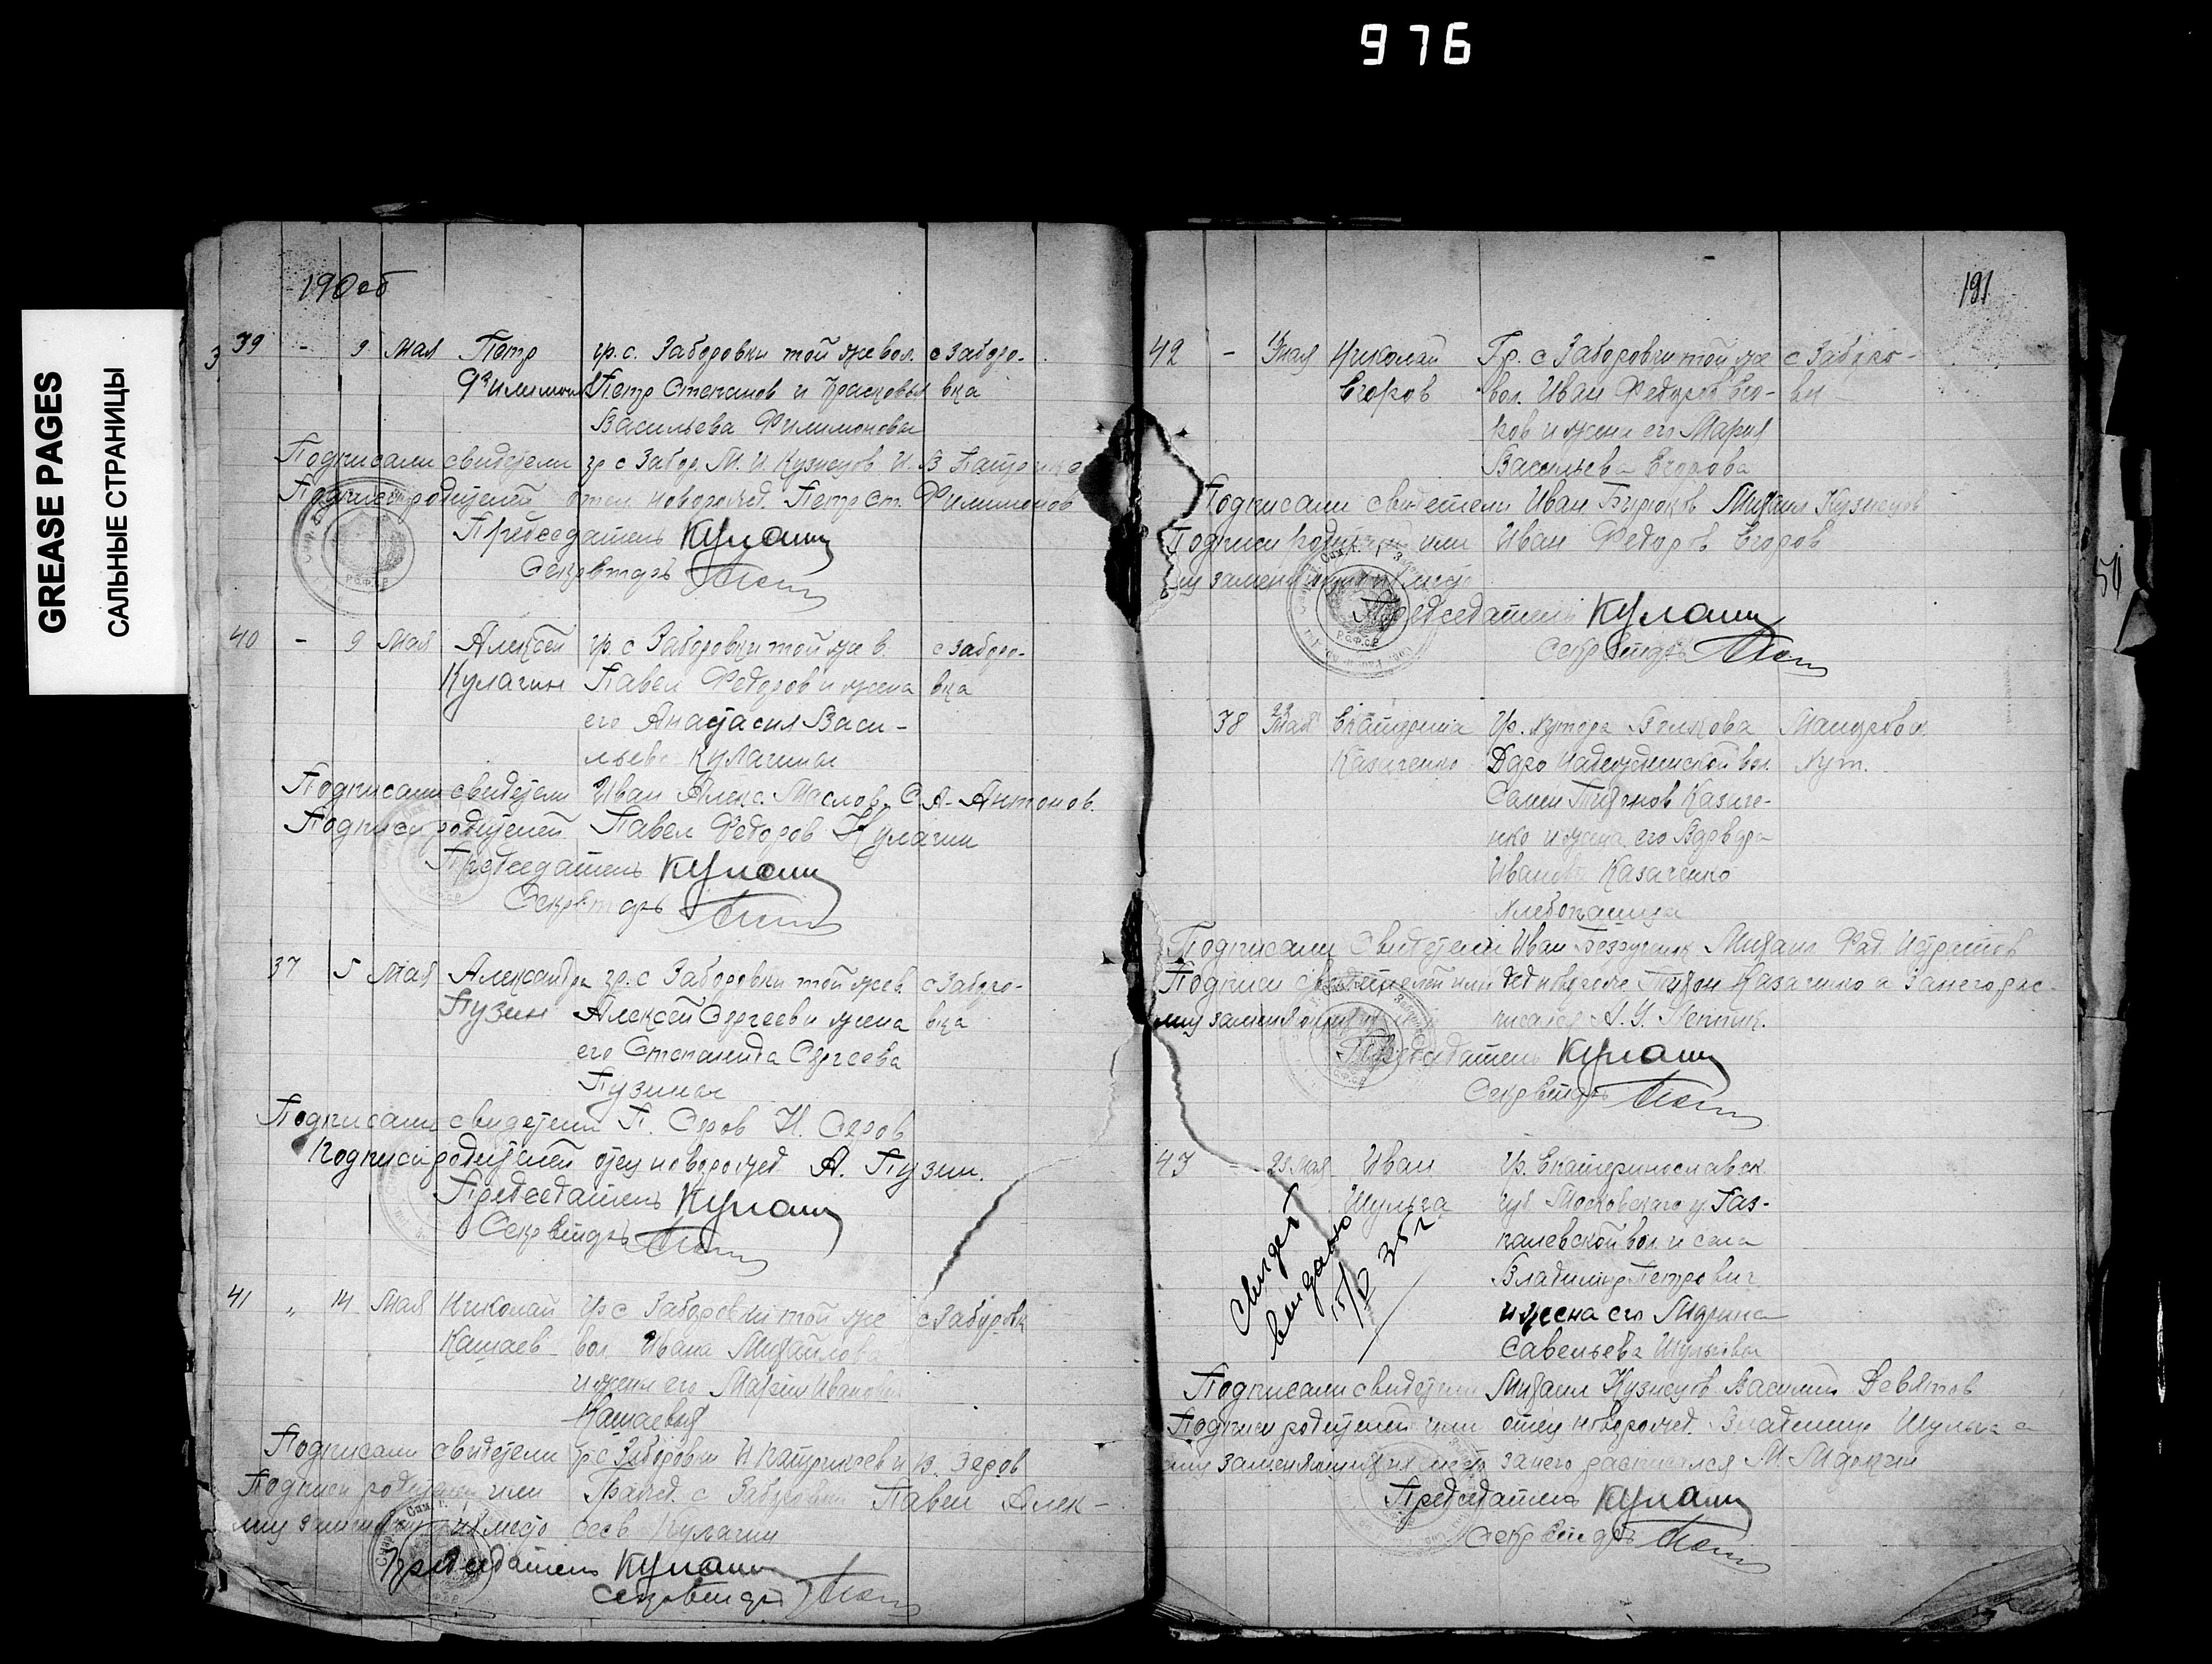 976
GREASE PAGES
САЛЬНЫЕ СТРАНИЦЫ
190 об
39 - 9 Мая Петр гр. с. Заборовки той же вол. с Заборо-
Филимонов Петр Степанов и Прасковья вка
Васильева Филимоновы
Подписали свидетели гр с Забор. М. И. Кузнецов. И. В.
Подписи родителей отец новорожд. Петр Ст. Филимонов
Председатель Кулагин
Секретарь
Р.С.Ф.С.Р.
40 - 9 Мая Алексей гр. с Заборовки той же в. с Заборо-
Кулагин Павел Федоров и жена вка
его Анастасия Васи-
льева Кулагины
Подписали свидетели Иван Алекс. Маслов, С. А. Антонов.
Подписи родителей Павел Федоров Кулагин
Председатель Кулагин
Секретарь
37 5 Мая Александра гр. с Заборовки той же в. с Заборо-
Пузин Алексей Сергеев и жена вка
его Степанида Сергеева
Пузины
Подписали свидетели П. Серов Н. Серов
Подписи родителей отец новорожд А. Пузин.
Председатель Кулагин
Секретарь
41 „ 14 Мая Николай гр с Заборовки той же с Заборовка
Кашаев вол. Ивана Михайлова
и жена его Мария Иванова
Кашаевы
Подписали свидетели гр с Заборовки И Патрикеев и В. Серов
Подписи родителей или Гражд. с Заборовки Павел Алек-
лиц заменяющих их место сеев Кулагин
Председатель Кулагин
Секретарь
191
42 - Мая Николай Гр. с Заборовки той же с Заборо-
Егоров вол. Иван Федоров Его- вки
ров и жена его Мария
Васильева Егорова
Подписали свидетели Иван Бирюков Михаил Кузнецов
Подписи родителей или Иван Федоров Егоров
лиц заменяющих их место
Председатель Кулагин
Секретарь
Р.С.Ф.С.Р.
50
38 23 Мая Екатерина Гр. хутора Волкова
Казаченко Даро Надеждинской вол. хут.
Семен Тихонов Казаче-
нко и жена его Варвара
Иванова Казаченко
Хлебопашца
Подписали Свидетели Иван Михаил
Подписи родителей или дед новорож Тихон Казаченко а за него рас-
лиц заменяющих писался А. У.
Председатель Кулагин
Секретарь
43 - 23 Мая Иван Гр. Екатеринославск
Шульга губ Московского у.
вол. и села
Владимир Петрович
и жена его Марина
Савельева Шульговы
Свидет
выдано
15/V 35 г
Подписали свидетели Михаил Кузнецов Василий Девятов
Подписи родителей или отец новорожд. Владимир Шульга а
лиц заменяющих их место за него расписался М.
Председатель Кулагин
Секретарь